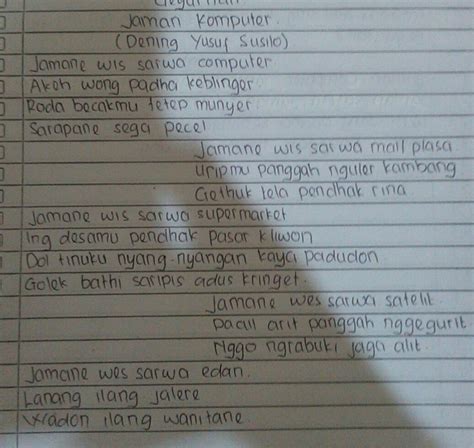 Jaman Komputer.
(Dening Yusuf Susilo)
Jamane wis sarwa computer
Akeh wong padha keblinger.
Roda becakmu tetep munyer.
Sarapane sega pecel
Jamane wis sarwa mall plasa
Uripmu panggah nguler kambang
Gethuk tela pendhak rina
Jamane wis sarwa supermarket
Ing desamu pendhak pasar kliwon
Dol tinuku nyang-nyangan kaya padudon
Golek bathi saripis adus kringet.
Jamane wes sarwa satelit.
Pacul arit panggah nggegurit.
Nggo ngrabuki jaga alit.
Jamane wes sarwa edan.
Lanang ilang jalere
Wadon ilang wanitane.